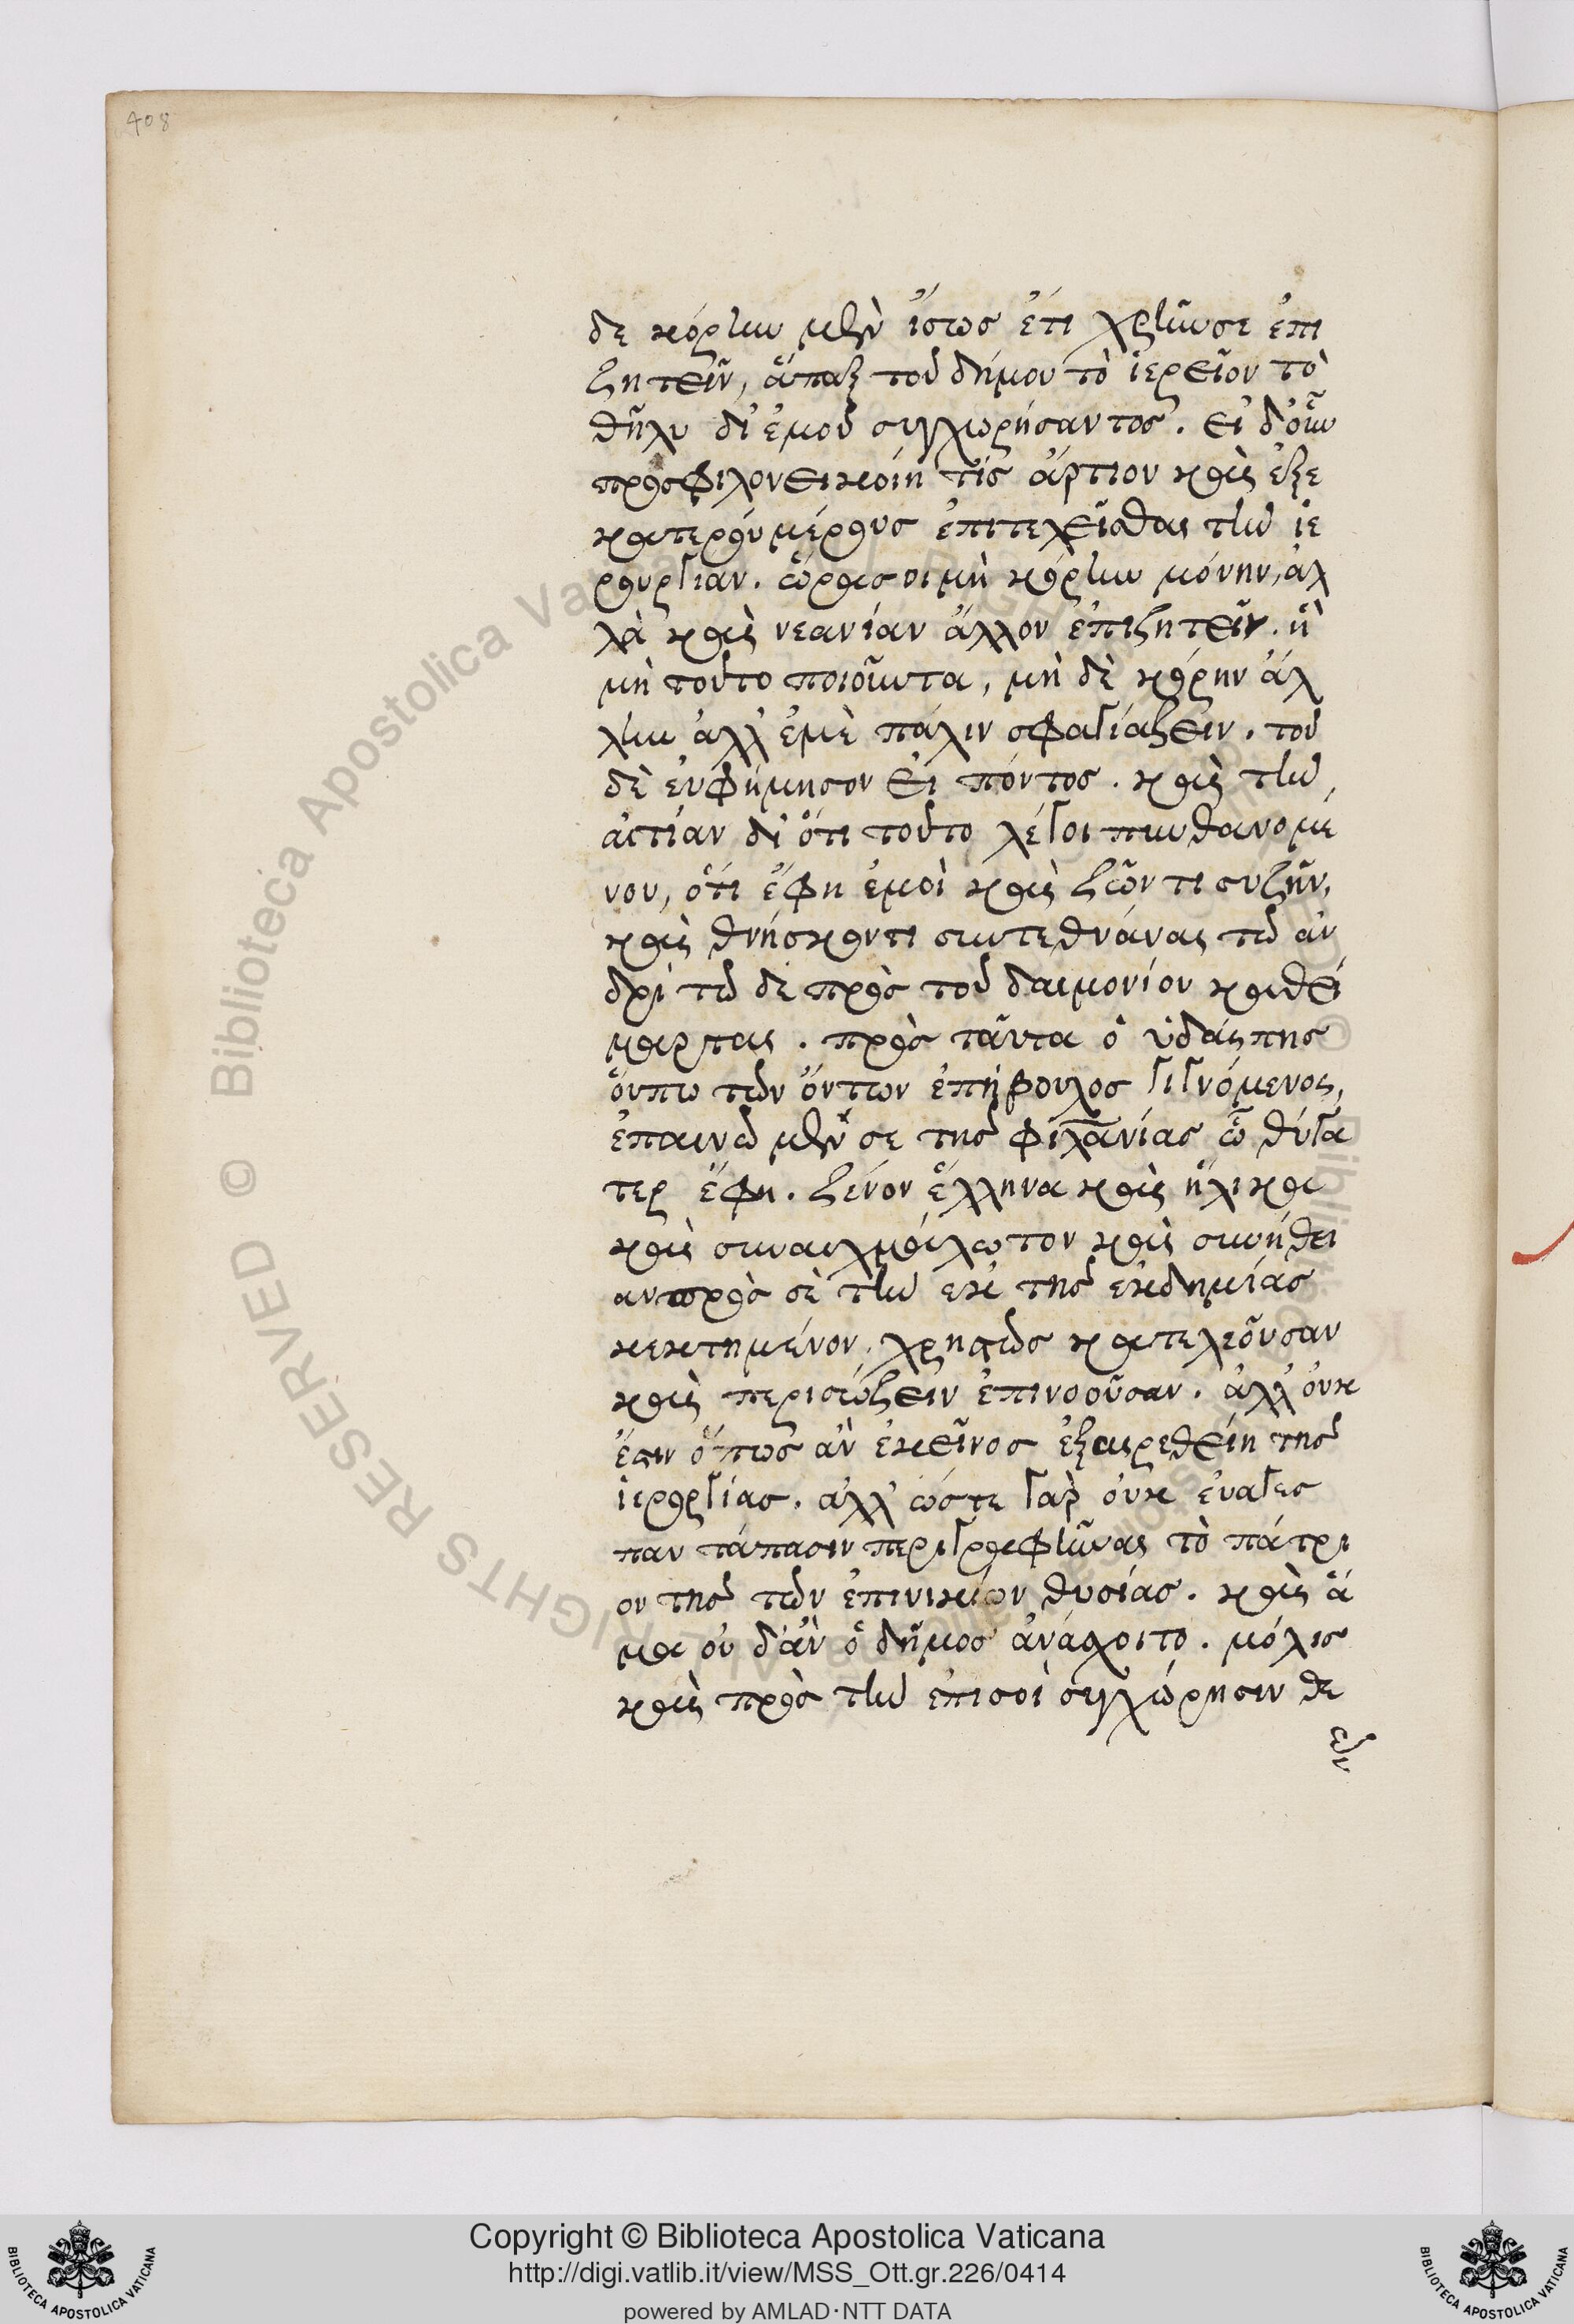 408
δε κόρην μὲν ἴσως ἔτι χρῆν σε ἐπι
ζητεῖν, ἅπαξ τοῦ δήμου τὸ ἱερεῖον τὸ
θῆλυ δι' ἐμοῦ συγχωρήσαντος. εἰ δ' οὖν
προσφιλονεικοίη τίς ἄρτιον καὶ ἐξ ἑ
κατέρου μέρους ἐπιτελεῖσθαι τὴν ἱε
ρουργίαν. ὥρα σοι μὴ κόρην μόνην, ἀλ
λὰ καὶ νεανίαν ἄλλον ἐπιζητεῖν. ἢ
μὴ τοῦτο ποιοῦντα, μὴ δὲ κόρην ἄλ
λην ἀλλ' ἐμὲ πάλιν σφαγιάζειν. τοῦ
δὲ εὐφήμησον εἰπόντος. καὶ τὴν
αἰτίαν δι' ὅτι τοῦτο λέγοι πυνθανομέ
νου, ὅτι ἔφη ἐμοὶ καὶ ζῶντι συζῆν,
καὶ θνήσκοντι συντεθνάναι τῷ ἀν
δρὶ τῷδε πρὸς τοῦ δαιμονίου καθεί
μαρται. πρὸς ταῦτα ὁ ὑδάσπης
οὔπω τῶν ὄντων ἐπήβουλος γιγνόμενος,
ἐπαινῶ μὲν σε τῆς φιλανίας ὦ θύγα
τερ ἔφη. ξένον ἕλληνα καὶ ἥλικα
καὶ συναιχμάλωτον καὶ συνήθει
αν πρὸς σὲ τὴν ἐκ τῆς ἐκδημίας
κεκτημένον, χρηστῶς κατελεοῦσαν
καὶ περισώζειν ἐπινοοῦσαν. ἀλλ' οὐκ
ἔστιν ὅπως ἂν ἐκεῖνος ἐξαιρεθείη τῆς
ἱερουργίας. ἀλλ' ὥστε γὰρ οὐκ εὐαγὲς
παντάπασιν περιγραφῆναι τὸ πάτρι
ον τῆς τῶν ἐπινικίων θυσίας. καὶ ἅ
μα οὐ δ' ἂν ὁ δῆμος ἀνάσχοιτο. μόλις
καὶ πρὸς τὴν ἐπὶ σοὶ συγχώρησιν θε
Copyright © Biblioteca Apostolica Vaticana
http://digi.vatlib.it/view/MSS_Ott.gr.226/0414
powered by AMLAD·NTT DATA